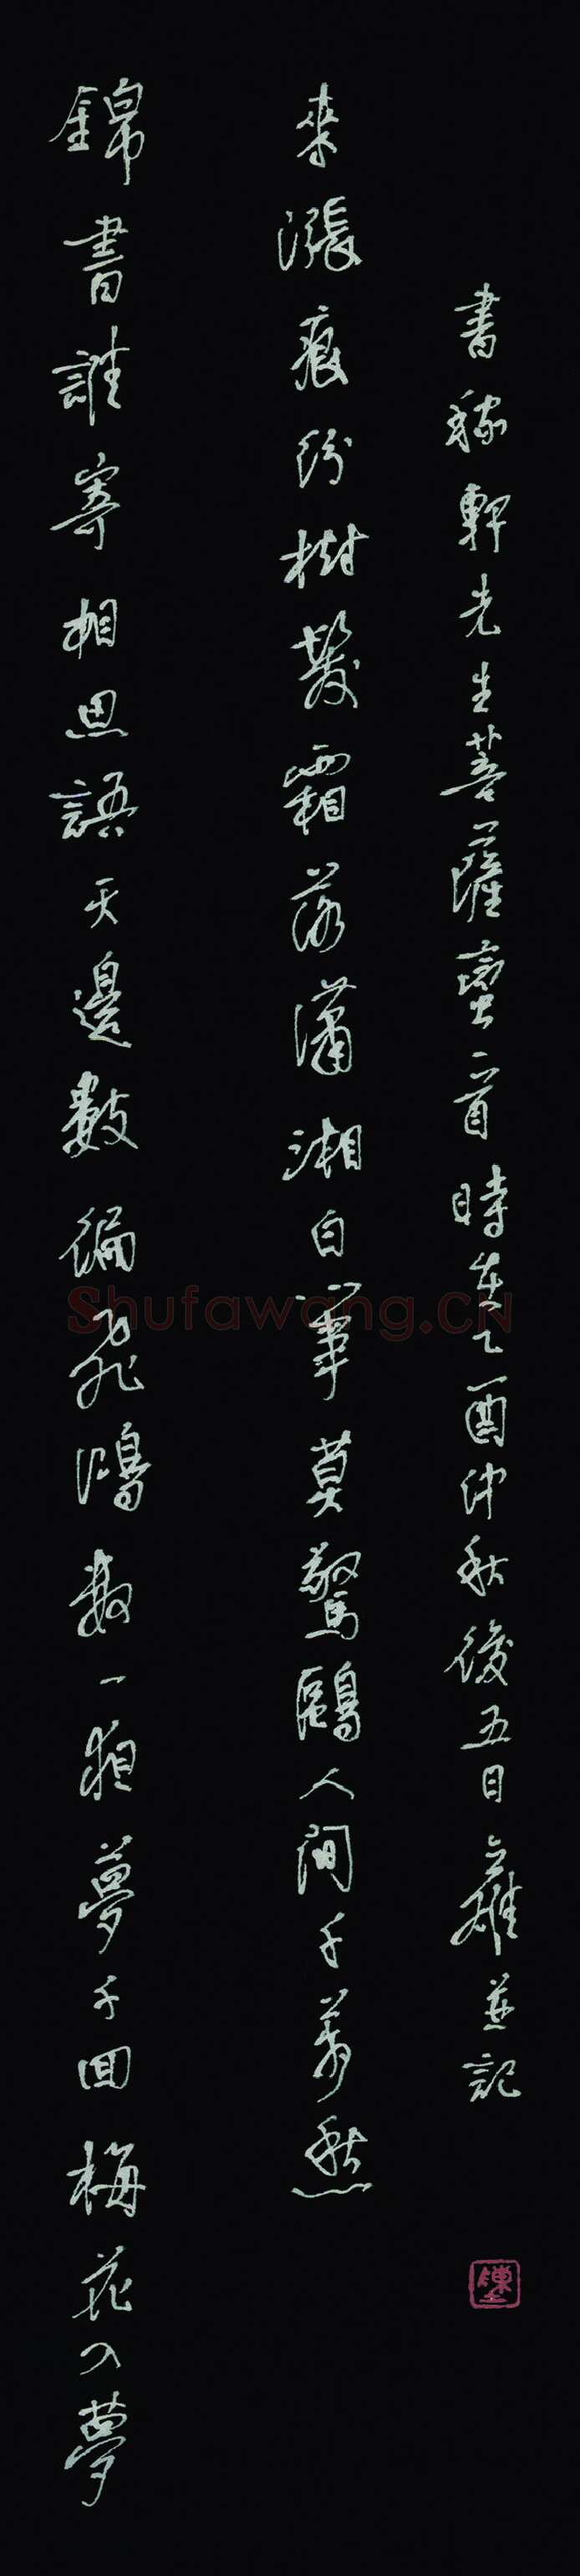 錦書誰寄相思語天邊數徧飛鴻數一夜夢千回梅花入夢
來漲痕紛樹髮霜落瀟湘白心事莫驚鷗人間千萬愁
書稼軒先生菩薩蠻一首時在乙酉仲秋後五日並記
Shufawang.CN